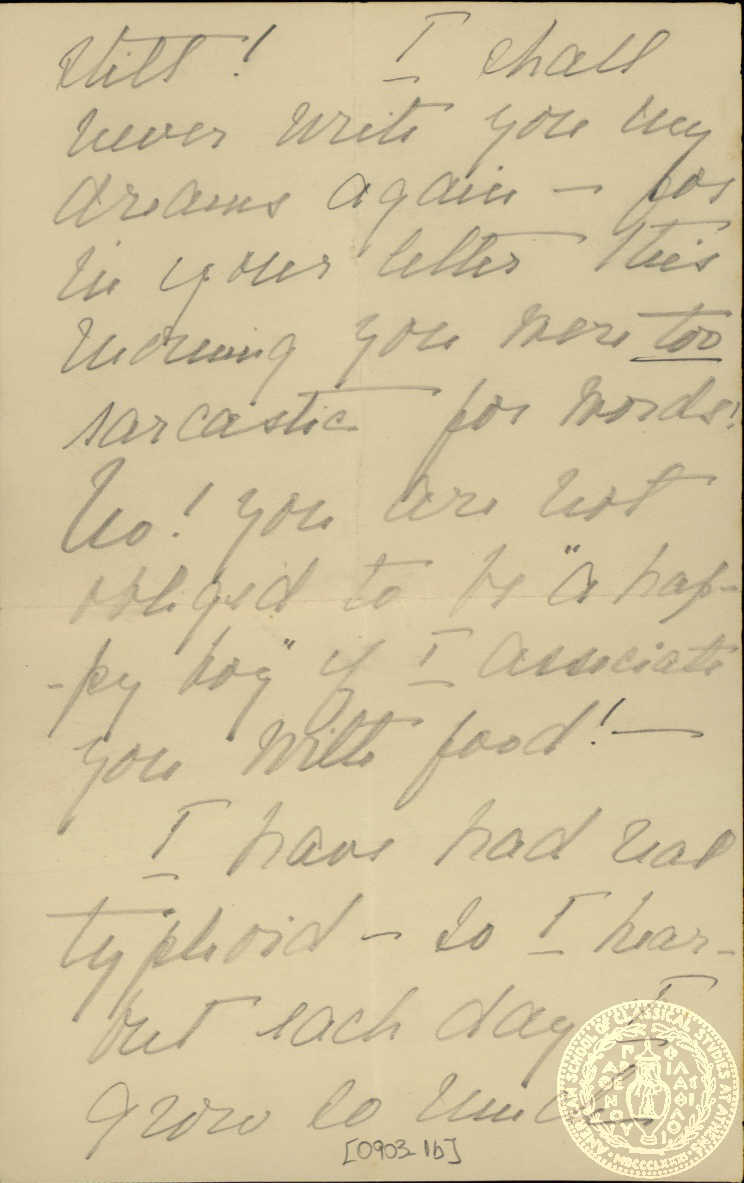 still! I shall
never write you my
dreams again — for
in your letter this
morning you were too
sarcastic for words!
No! you are not
obliged to be "a hap-
-py boy" if I associate
you with food! —
I have had real
typhoid — so I hear —
but each day I
grow so much
[0903-1b]
AMERICAN SCHOOL OF CLASSICAL STUDIES AT ATHENS
ΠΑΡΘΕΝΟΥ ΦΙΛΑΣ ΦΙΛΟΙ
MDCCCLXXXI